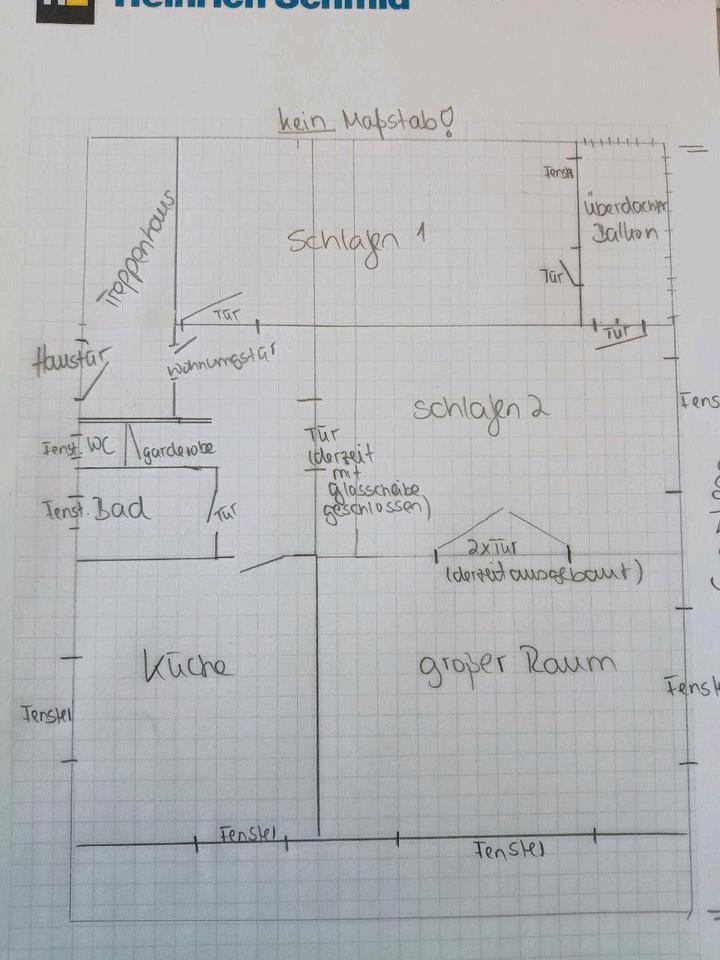 Heinrich Schmid
kein Maßstab!
Fenst.
Überdachter
Balkon
Treppenhaus
Schlafen 1
Tür
Tür
Tür
Haustür
Wohnungstür
Schlafen 2
Fens
Tür
(derzeit
mit
glasscheibe
geschlossen)
Fenst. WC
garderobe
Fenst. Bad
Tür
2x Tür
(derzeit ausgebaut)
Küche
großer Raum
Fenster
Fenste
Fenster
Fenster